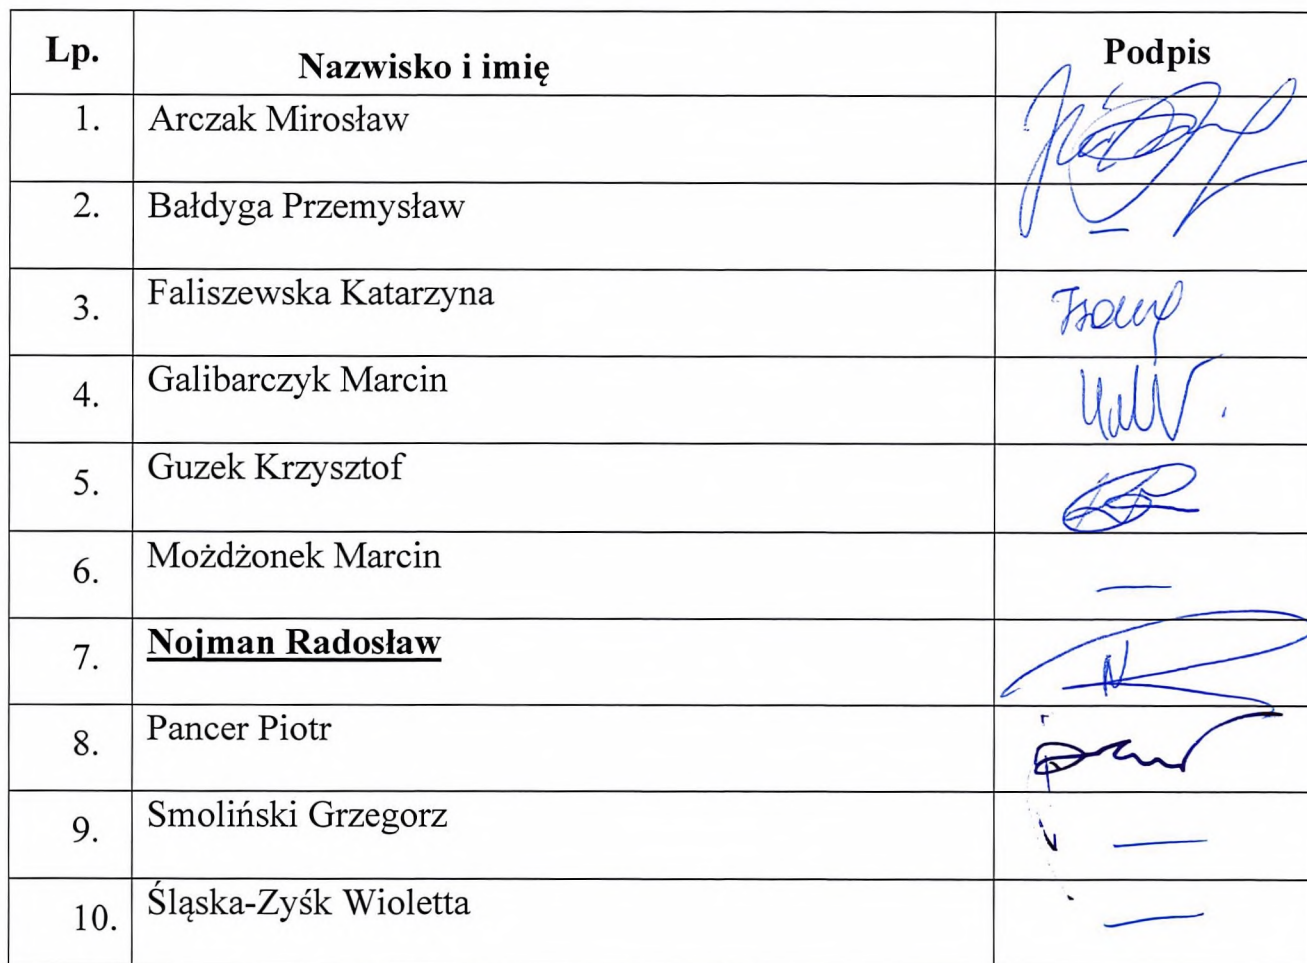 Lp. Nazwisko i imię Podpis
1. Arczak Mirosław
2. Bałdyga Przemysław —
3. Faliszewska Katarzyna
4. Galibarczyk Marcin
5. Guzek Krzysztof
6. Możdżonek Marcin —
7. Nojman Radosław
8. Pancer Piotr
9. Smoliński Grzegorz —
10. Śląska-Zyśk Wioletta —